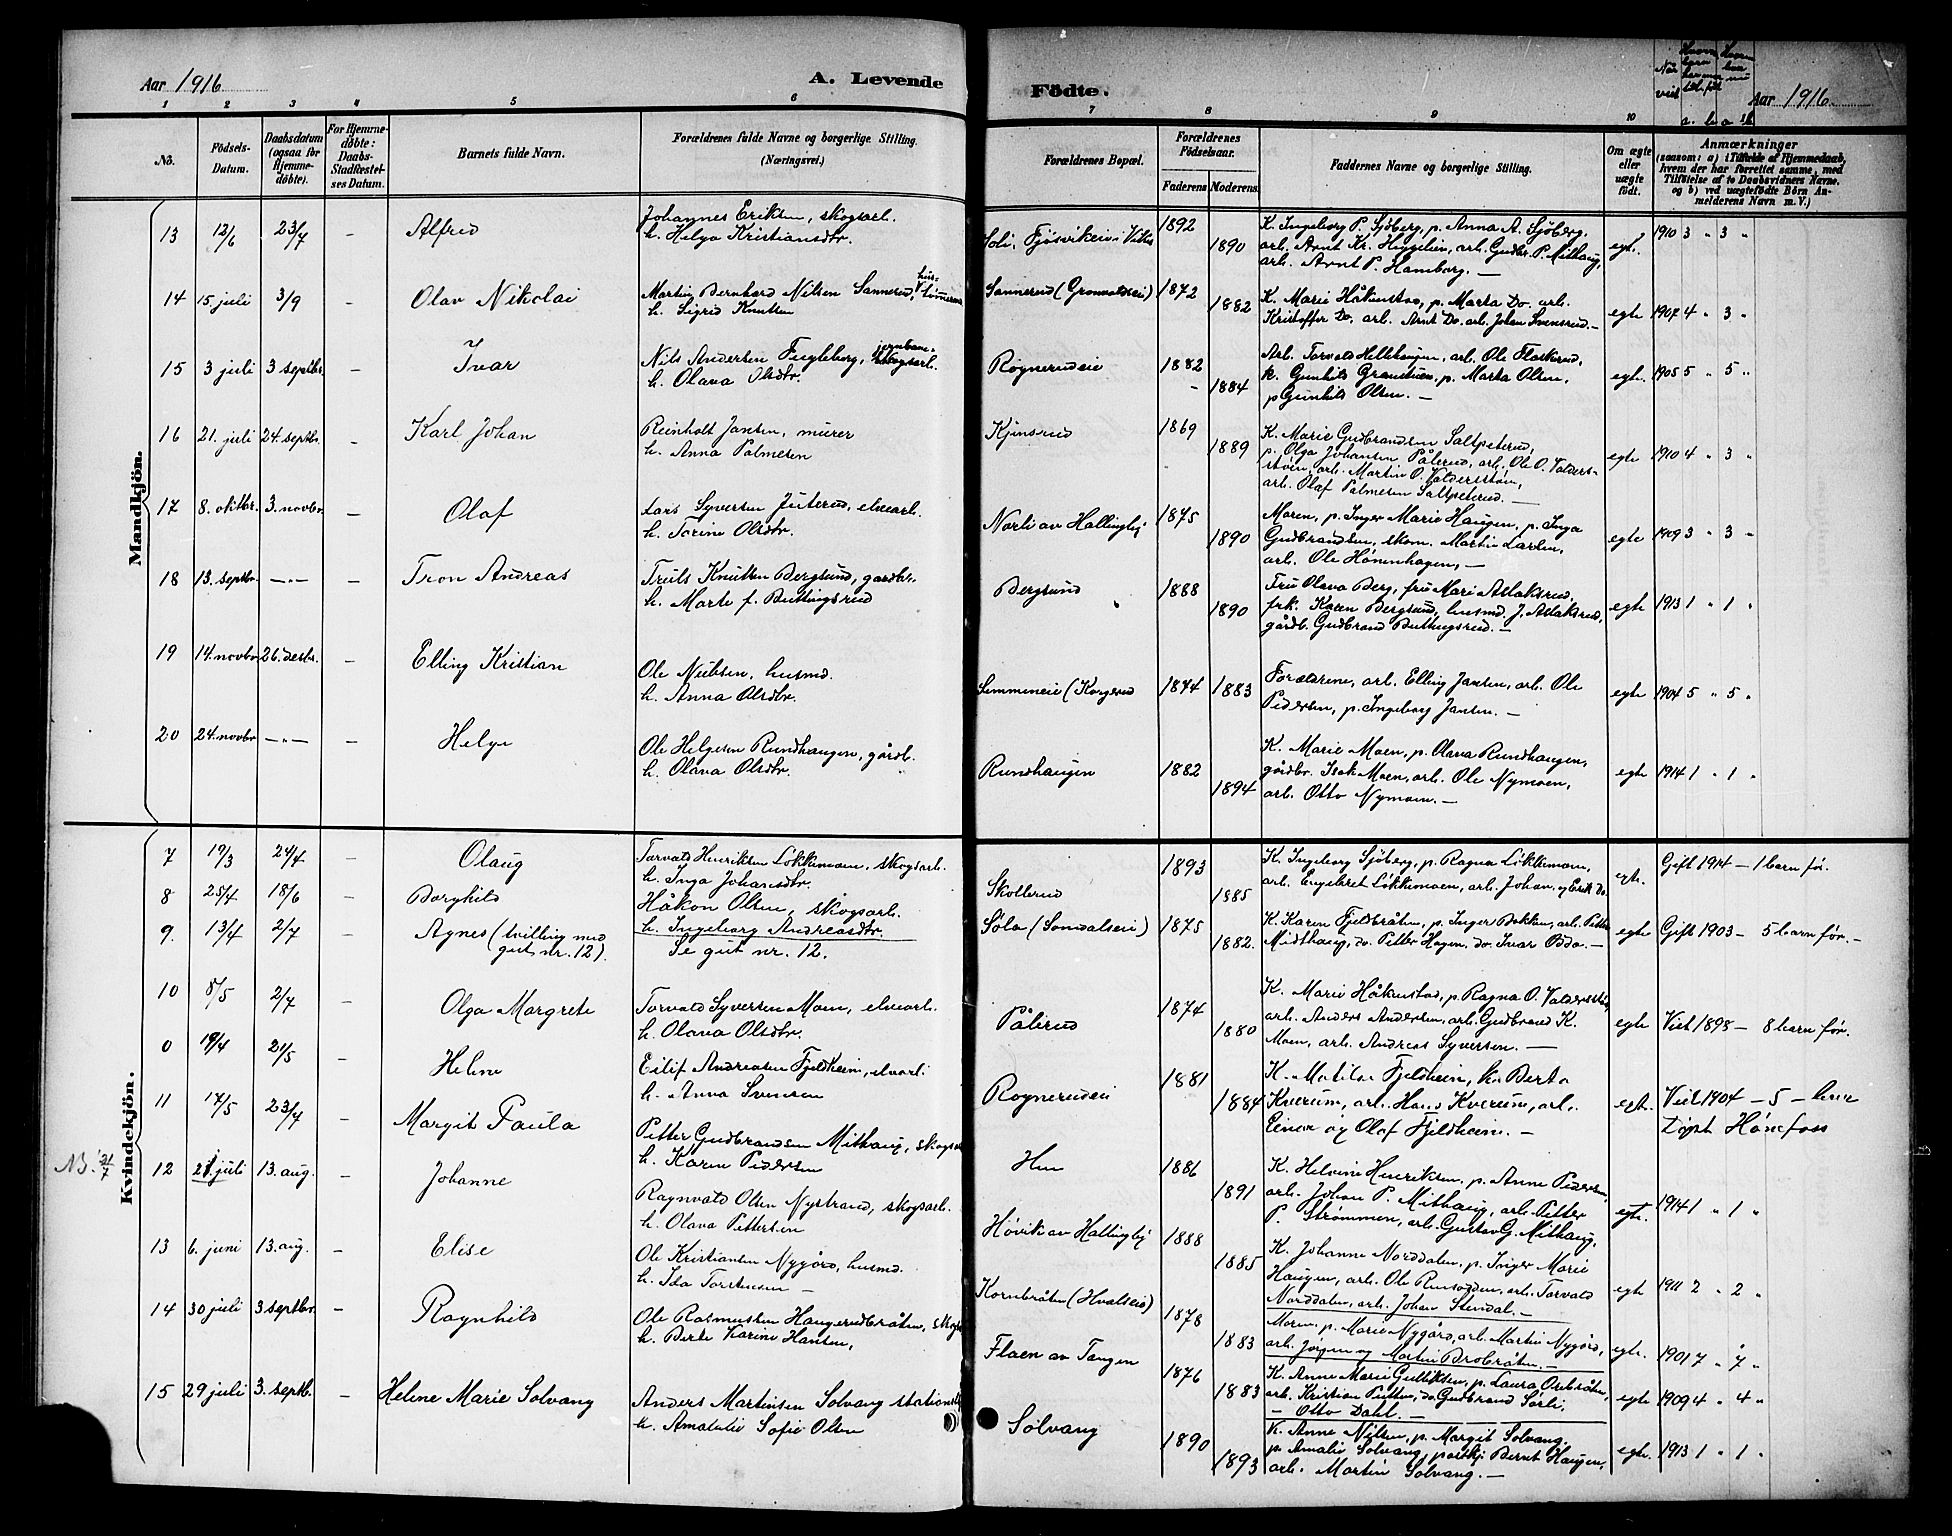 Aar 1916
A. Levende
1 2 3 4 5 6
No.
Fødsels-Datum.
Daabsdatum (ogsaa for Hjemme-døbte).
For Hjemme-døbte: Daabs-Stadfæstel-ses Datum.
Barnets fulde Navn.
Forældrenes fulde Navne og borgerlige Stilling. (Næringsvei.)
Mandkjön.
13 12/6 23/7 – Alfred
Johannes Eriksen, skogsarb.
h. Helga Kristiansdtr.
14 15 juli 3/9 – Olav Nikolai
Martin Bernhard Nilsen Sannerud,
h. Sigrid Knutsen
15 3 juli 3 septbr. – Ivar
Nils Andersen Fugleberg, jernbane- skogsarb.
h. Olava Olsdtr.
16 21. juli 24. septbr. – Karl Johan
Reinholt Jansen, murer
h. Anna Palmesen
17 8. oktbr. 3. novbr. – Olaf
Lars Syversen Juterud, elvearb.
h. Torine Olsdtr.
18 13. septbr. –"– – Tron Andreas
Truls Knutsen Bergsund, gardbr.
h. Marte f. Buttingsrud
19 14. novbr. 26. desbr. – Elling Kristian
Ole Nielsen, husmd.
h. Anna Olsdtr.
20 24. novbr. –"– – Helge
Ole Helgesen Rundhaugen, gårdb.
h. Olava Olsdtr.
Kvindekjön.
7 19/3 24/4 – Olaug
Torvald Henriksen Løkkemoen, skogsarb.
h. Inga Johansdtr.
8 25/4 18/6 – Borghild
Håkon Olsen, skogsarb.
h. Ingeborg Andreasdtr.
9. 13/4 2/7 Agnes (tvilling med gut nr. 12).
Se gut nr. 12.
10 8/5 2/7 – Olga Margrete
Torvald Syversen Moen, elvearb.
h. Olava Olsdtr.
0 19/4 21/5 – Helene
Eilif Andreasen Fjeldheim, elvearb.
h. Anna Svensen
11 17/5 23/7 – Margit Paula
Petter Gudbrandsen Mithaug, skogsarb
h. Karen Pedersen
NB. 21/7
12 21 juli 13. aug. – Johanne
Ragnvald Olsen Nystrand, skogsarb.
h. Olava Pettersen
13 6. juni 13. aug. – Elise
Ole Kristiansen Nygård, husmd.
h. Ida Torstensen –
14 30 juli 3 septbr. – Ragnhild
Ole Rasmussen Haugerudbråten, skogs
h. Berte Karine Hansen,
15 29 juli 3. septb. – Helene Marie Solvang
Anders Martinsen Solvang stations
h. Amatalie Sofie Olsen
Födte.
Aar 1916
7 8 9 10
Forældrenes Bopæl.
Forældrenes Födselsaar.
Faderens Moderens
Faddernes Navne og borgerlige Stilling.
Om ægte eller uægte födt.
Anmærkninger
(saasom: a) i Tilfælde af Hjemmedaab, hvem der har forrettet samme, med Tilföielse af to Daabsvidners Navne. og b) ved uægtefödte Börn An-melderens Navn m. V.)
1892 1890
K. Ingeborg P. Sjøberg, p. Anna A. Sjøberg,
arb. Arnt Kr. Hyggelien, arb. Gudbr. P. Mithaug,
arb. Arnt P. Hamborg. –
egt. 1910 3 " 3 "
Sannerud (Gromvoldseie) 1872 1882
K. Marie Håkenstad, p. Marta Do. arb.
Kristoffer Do. arb. Arnt Do. arb. Johan Svensrud. –
egte 1907 4 " 3 "
Røgnerudeie 1882 – 1884
Arb. Torvald Hellehaugen, arb. Ole Flaskerud,
k. Gunhild Granstuen, p. Marta Olsen,
p. Gunhild Olsen. –
egte. 1905 5 " 5 "
Kjinsrud 1869 1889
K. Marie Gudbrandsen Saltpeterud,
p. Olga Johansen Pålerud, arb. Ole O. Valders-
støen, arb. Martin O. Valdersstøen,
arb. Olaf Palmesen Saltpeterud. –
egte 1910 4 " 3 "
Norli av Hallingby 1875 1890
Moren, p. Inger Marie Haugen, p. Inga
Gudbrandsen, skom. Martin Larsen,
arb. Ole Hønenhagen, –
egte 1909 3 " 3 "
Bergsund 1888 1890
Fru Olava Berg, fru Mari Aslaksrud,
frk. Karen Bergsund, husmd. J. Aslaksrud,
gårdb. Gudbrand Buttingsrud. –
egte 1913 1 " 1 "
Semmeneie (Korgerud 1874 1883
Forældrene, arb. Elling Jansen, arb. Ole
Pedersen, p. Ingeborg Jansen. –
egte 1904 5 " 5 "
Rundhaugen 1882 1894
K. Marie Moen, p. Olava Rundhaugen,
gårdbr. Isak Moen, arb. Ole Nymoen,
arb. Otto Nymoen. –
egte 1914 1 " 1 "
Skollerud 1893 1885
K. Ingeborg Sjøberg, p. Ragna Løkkemoen,
arb. Engebret Løkkemoen, arb. Johan og Erik Do.
egt. Gift 1914 – 1 barn før.
Søla (Somdalseie) 1875 1882.
K. Karen Fjeldbråten, p. Inger Bakken, arb. Petter
Midthaug, do. Petter Hagen, do. Ivar Oddo. –
egte Gift 1903 – 5 barn før. –
Pålerud 1874 1880
K. Marie Håkenstad, p. Ragna O. Valdersstøen,
arb. Anders Andersen, arb. Gudbrand K.
Moen, arb. Andreas Syversen. –
egte Viet 1898 – 8 barn før.
Rognerudeie 1881 1884
K. Matilde Fjeldheim, k. Berta
Kverum, arb. Hans Kverum, arb.
Einar og Olaf Fjeldheim. –
egt. Viet 1904 – 5 –
Døpt Hønefoss
Hen 1886 1891
K. Helvine Henriksen, p. Anne Pedersen,
arb. Johan P. Mithaug, arb. Petter
P. Strømmen, arb. Gustav G. Mithaug,
egte. 1914 1 " 1 "
Høvik av Hallingby 1888 1885
K. Johanne Norddalen, p. Inger Marie
Haugen, arb. Ole Rensødden, arb. Torvald
Norddalen, arb. Johan Stendal. –
egte 1911 2 " 2 "
Kornbråten (Hvalseie) 1878 1883
Moren, p. Marie Nygård, arb. Martin Nygård,
arb. Jørgen og Martin Brobråten. –
egte. 1901 7 " 7 "
Flaen av Tangen 1876 1883
K. Anne Marie Gulliksen, p. Laura Oxebråten,
arb. Kristian Putten, do. Gudbrand Sørli,
– Otto Dahl. –
egte 1909 4 " 4 "
Sølvang 1890 1893
K. Anne Nilsen, p. Margit Solvang,
p. Amalie Solvang, Bernt Haugen,
arb. Martin Solvang. –
egte. 1913 1 " 1 "